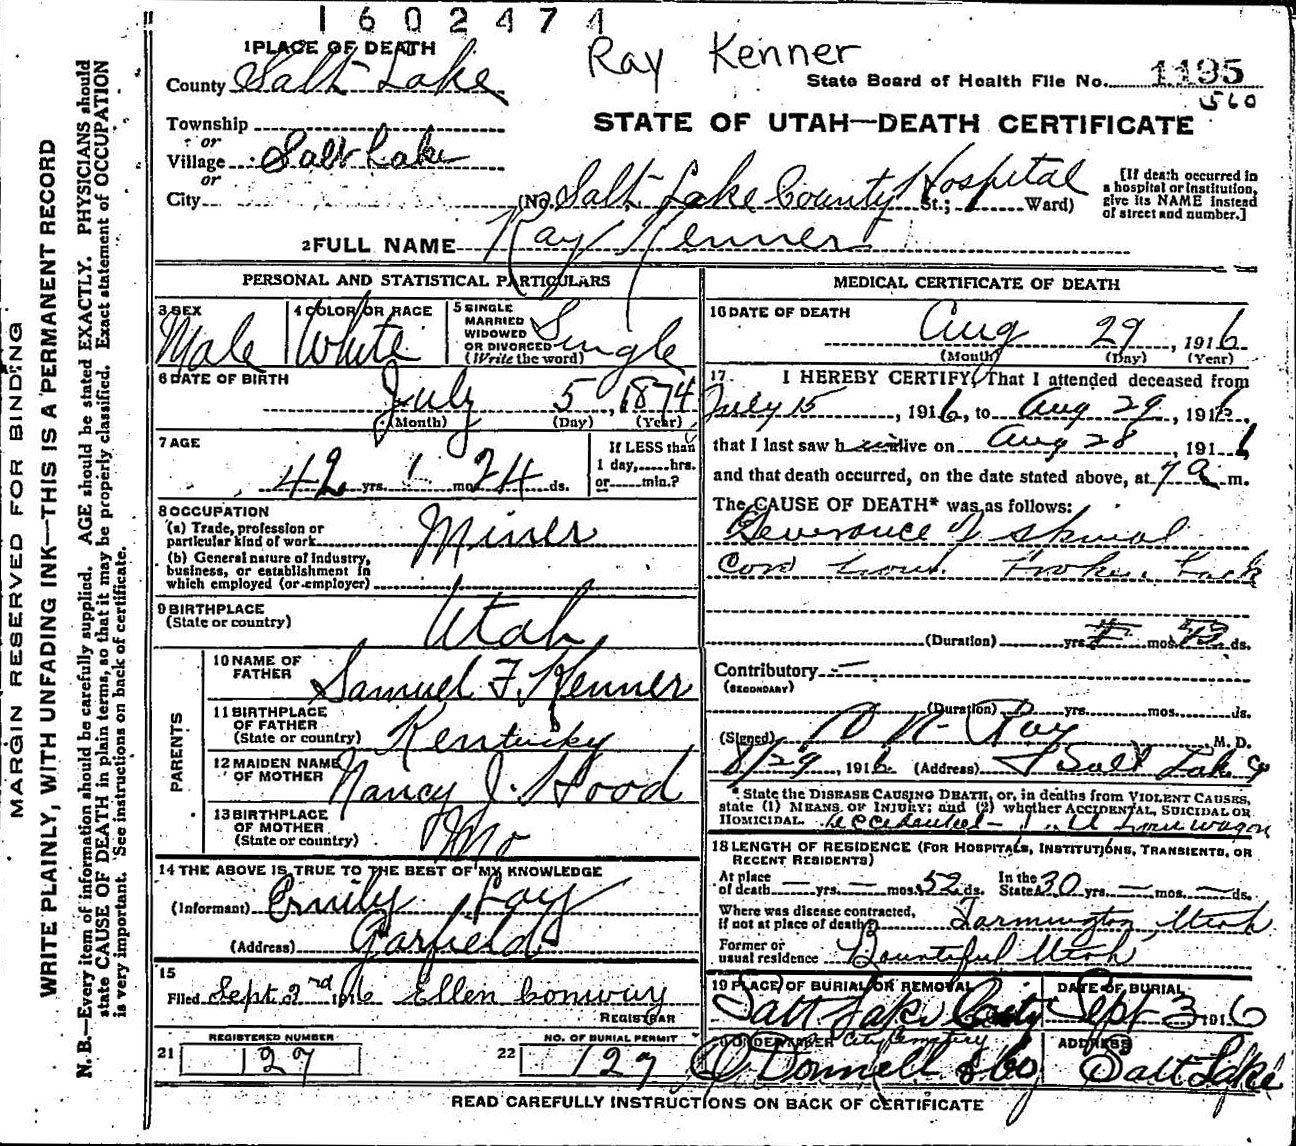 1602474
Ray Kenner
1 PLACE OF DEATH
County Salt Lake
State Board of Health File No. 1195
560
Township
or
Village Salt Lake
or
City
STATE OF UTAH—DEATH CERTIFICATE
(No. Salt Lake County Hospital St.; Ward)
[If death occurred in
a hospital or institution,
give its NAME instead
of street and number.]
2 FULL NAME Ray Kenner
PERSONAL AND STATISTICAL PARTICULARS
3 SEX
Male
4 COLOR OR RACE
White
5 SINGLE
MARRIED
WIDOWED
OR DIVORCED
(Write the word)
Single
6 DATE OF BIRTH
July 5, 1874
(Month) (Day) (Year)
7 AGE
42 yrs. 1 mo. 24 ds.
If LESS than
1 day, hrs.
or min.?
8 OCCUPATION
(a) Trade, profession or
particular kind of work
Miner
(b) General nature of industry,
business, or establishment in
which employed (or employer)
9 BIRTHPLACE
(State or country)
Utah
PARENTS
10 NAME OF
FATHER
Samuel F. Kenner
11 BIRTHPLACE
OF FATHER
(State or country)
Kentucky
12 MAIDEN NAME
OF MOTHER
Nancy J. Hood
13 BIRTHPLACE
OF MOTHER
(State or country)
Mo
14 THE ABOVE IS TRUE TO THE BEST OF MY KNOWLEDGE
(Informant) Emily Fay
(Address) Garfield
15
Filed Sept 2nd 1916 Ellen Conway
REGISTRAR
REGISTERED NUMBER
21 127
NO. OF BURIAL PERMIT
22 127
MEDICAL CERTIFICATE OF DEATH
16 DATE OF DEATH
Aug 29, 1916
(Month) (Day) (Year)
17. I HEREBY CERTIFY, That I attended deceased from
July 15, 1916, to Aug 29, 1916,
that I last saw him alive on Aug 28, 1916
and that death occurred, on the date stated above, at 7 a m.
The CAUSE OF DEATH* was as follows:
Severance of spinal
cord from broken back
(Duration) yrs. mos. ds.
Contributory —
(SECONDARY)
(Duration) yrs. mos. ds.
(Signed) Ray M. D.
8/29, 1916 (Address) Salt Lake
* State the DISEASE CAUSING DEATH, or, in deaths from VIOLENT CAUSES,
state (1) MEANS OF INJURY; and (2) whether ACCIDENTAL, SUICIDAL OR
HOMICIDAL. Accidental — from wagon
18 LENGTH OF RESIDENCE (FOR HOSPITALS, INSTITUTIONS, TRANSIENTS, OR
RECENT RESIDENTS)
At place
of death — yrs. — mos. 52 ds.
In the
State 30 yrs. — mos. — ds.
Where was disease contracted,
if not at place of death? Farmington Utah
Former or
usual residence Bountiful Utah
19 PLACE OF BURIAL OR REMOVAL
Salt Lake City
City Cemetery
DATE OF BURIAL
Sept 3 1916
20 UNDERTAKER
O'Donnell & Co
ADDRESS
Salt Lake
READ CAREFULLY INSTRUCTIONS ON BACK OF CERTIFICATE
MARGIN RESERVED FOR BINDING
WRITE PLAINLY, WITH UNFADING INK—THIS IS A PERMANENT RECORD
N. B.—Every item of information should be carefully supplied. AGE should be stated EXACTLY. PHYSICIANS should
state CAUSE OF DEATH in plain terms, so that it may be properly classified. Exact statement of OCCUPATION
is very important. See instructions on back of certificate.